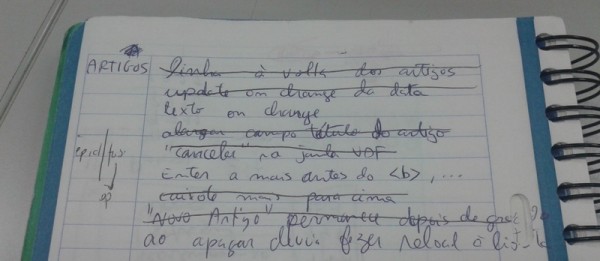 ARTIGOS linha à volta dos artigos
update on change da data
texto on change
alargar campo título do artigo
"cancelar" na janela VOF
Enter a mais antes do <b>, ...
caixote mais para cima
"Novo Artigo" permanece depois de
ao apagar devia fazer reload à